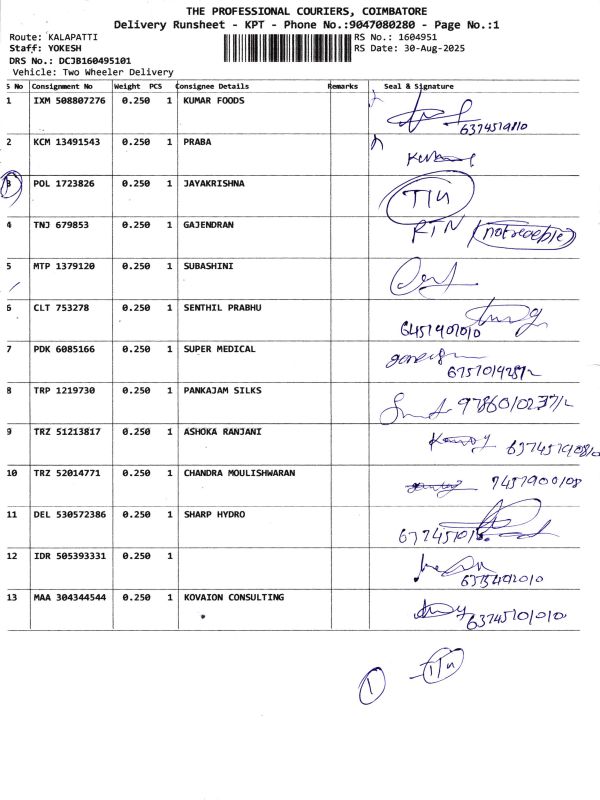 THE PROFESSIONAL COURIERS, COIMBATORE
Delivery Runsheet - KPT - Phone No.:9047080280 - Page No.:1
Route: KALAPATTI RS No.: 1604951
Staff: YOKESH RS Date: 30-Aug-2025
DRS No.: DCJB160495101
Vehicle: Two Wheeler Delivery
S No Consignment No Weight PCS Consignee Details Remarks Seal & Signature
1 IXM 508807276 0.250 1 KUMAR FOODS
2 KCM 13491543 0.250 1 PRABA
3 POL 1723826 0.250 1 JAYAKRISHNA
4 TNJ 679853 0.250 1 GAJENDRAN RTN
5 MTP 1379120 0.250 1 SUBASHINI
6 CLT 753278 0.250 1 SENTHIL PRABHU
7 PDK 6085166 0.250 1 SUPER MEDICAL
8 TRP 1219730 0.250 1 PANKAJAM SILKS
9 TRZ 51213817 0.250 1 ASHOKA RANJANI
10 TRZ 52014771 0.250 1 CHANDRA MOULISHWARAN
11 DEL 530572386 0.250 1 SHARP HYDRO
12 IDR 505393331 0.250 1
13 MAA 304344544 0.250 1 KOVAION CONSULTING
1